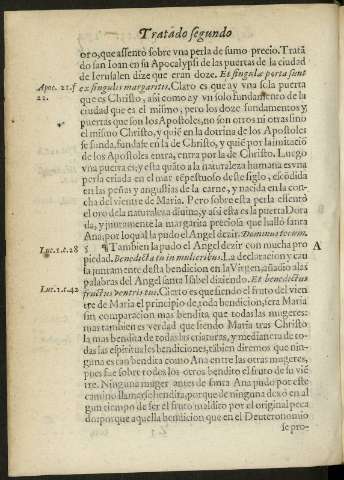 Tratado segundo
oro, que assentò sobre vna perla de sumo precio. Tratã
do san Ioan en su Apocalypsi de las puertas de la ciudad
de Ierusalen dize que eran doze. Et singulæ portæ sunt
Apoc. 21. &
ex singulis margaritis. Claro es que ay vna sola puerta
22.
que es Christo, asi como ay vn solo fundamento de la
ciudad que es el mismo; pero los doze fundamentos y
puertas que son los Apostoles, no son otros ni otras sino
el mismo Christo, y quiẽ en la dotrina de los Apostoles
se funda, fundase en la de Christo, y quiẽ por la imitaciõ
de los Apostoles entra, entra por la de Christo. Luego
vna puerta es; y esta quãto a la naturaleza humana es vna
perla criada en el mar tẽpestuoso deste siglo, escõdida
en las peñas y angustias de la carne, y nacida en la con-
cha del vientre de Maria. Pero sobre esta perla assentò
el oro de la naturaleza diuina, y asi esta es la puerta Dora
da, y juntamente la margarita preciosa que hallò santa
Ana; por lo qual la pudo el Angel dezir. Dominus tecum.
Luc. 1. c. 28
¶ Tambien la pudo el Angel dezir con mucha pro
A
piedad. Benedicta tu in mulieribus. La declaracion y cau
sa juntamente desta bendicion en la Virgen, añadio a las
palabras del Angel santa Isabel diziendo. Et benedictus
Luc. 1. c. 42
fructus ventris tui. Cierto es que siendo el fruto del vien
tre de Maria el principio de toda bendicion, sera Maria
sin comparacion mas bendita que todas las mugeres:
mas tambien es verdad que siendo Maria tras Christo
la mas bendita de todas las criaturas, y mediante ra de to-
das las espirituales bendiciones, tãbien diremos que nin-
guna es tan bendita como Ana entre las otras mugeres,
pues fue sobre todos los otros bendito el fruto de su viẽ
tre. Ninguna muger antes de santa Ana pudo por este
camino llamarse bendita, porque de ninguna dexò en al
gun tiempo de ser el fruto maldito por el original peca
do: porque aquella bendicion que en el Deuteronomio
se pro-